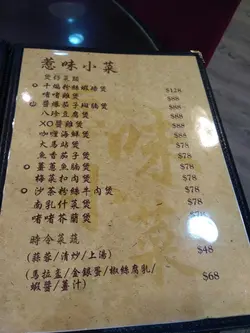 惹味小菜
煲仔菜類
干燒粉絲蝦球煲 $128
啫啫雞煲 $88
醬爆茄子拟腸煲 $88
八珍豆腐煲 $88
XO醬雞煲 $88
咖喱海鮮煲 $88
大馬站煲 $78
魚香茄子煲 $78
薑蔥魚腩煲 $78
梅菜扣肉煲 $78
沙茶粉絲牛肉煲 $78
南乳什菜煲 $78
啫啫芥蘭煲 $78
時令菜蔬
(蒜蓉/清炒/上湯) $48
(馬拉盞/金銀蛋/椒絲腐乳/
蝦醬/薑汁) $68